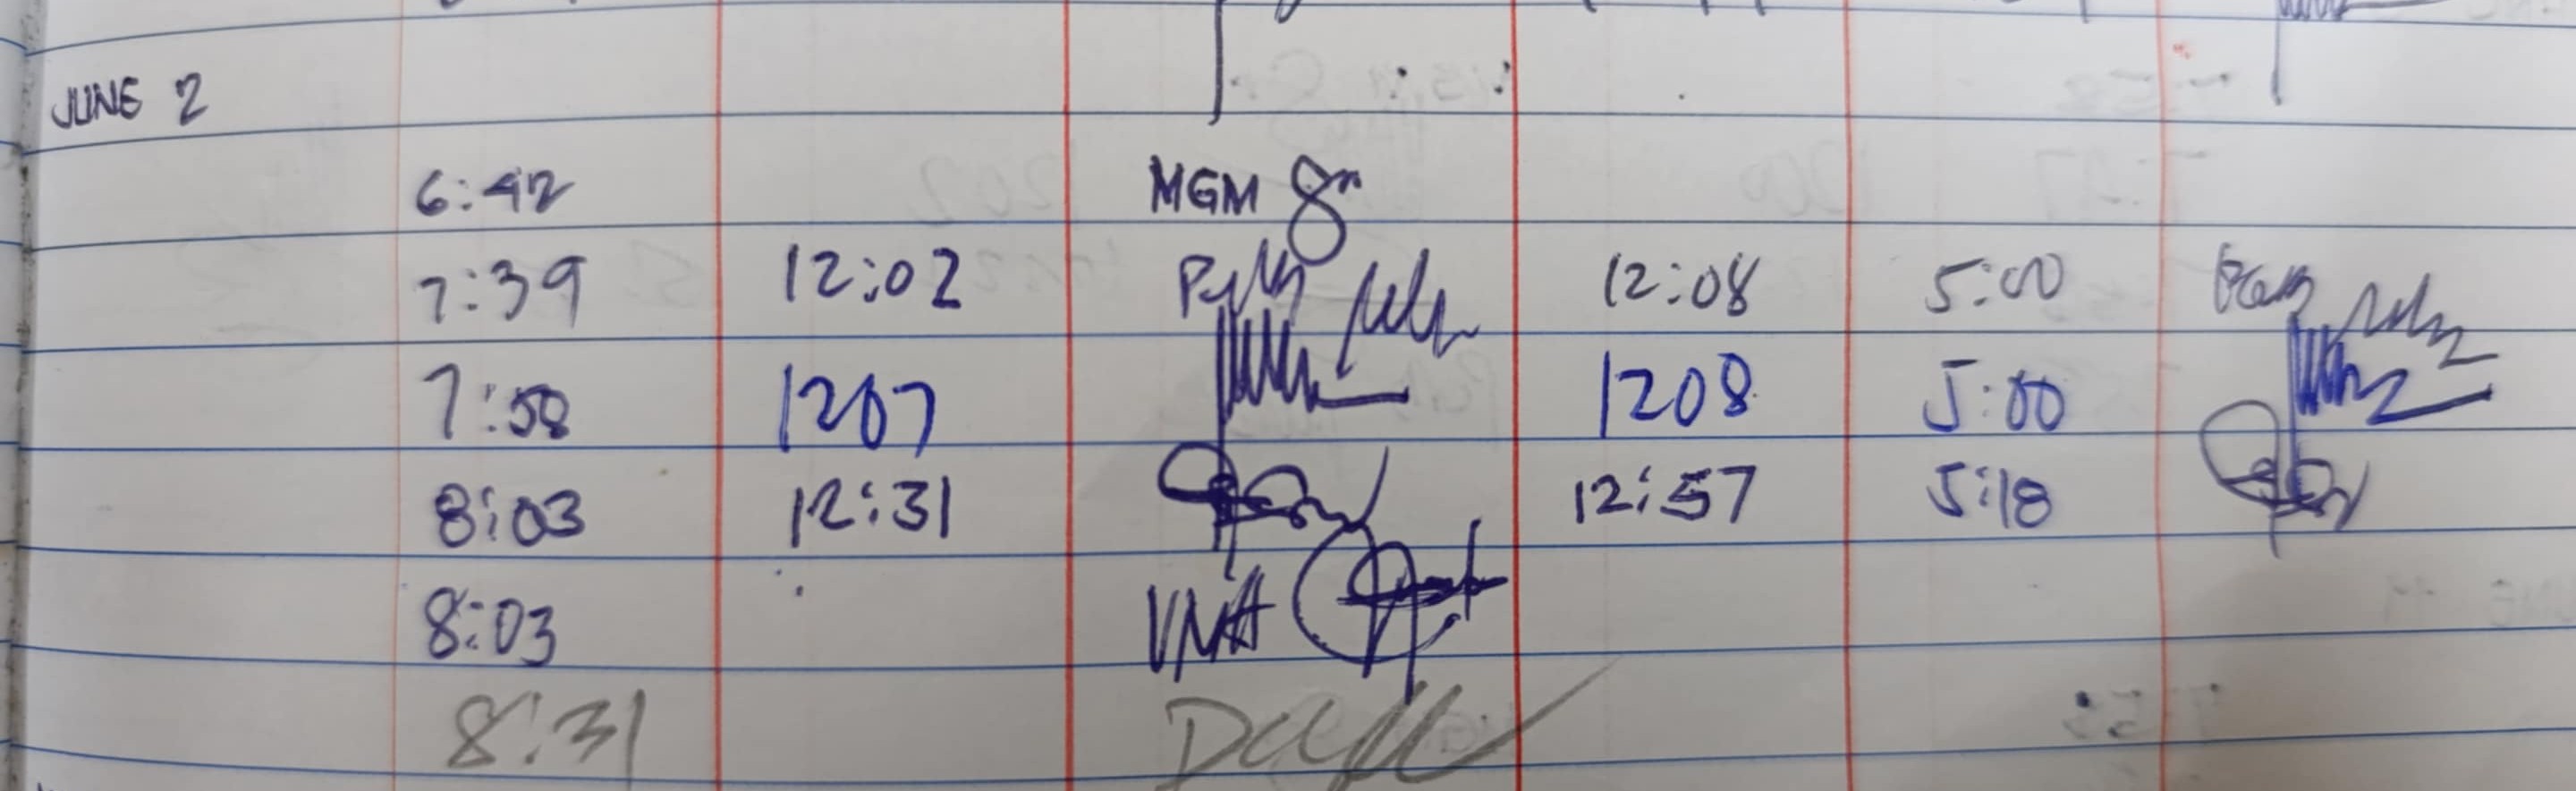 JUNE 2
6:42 MGM
7:39 12:02 12:08 5:00
7:58 1207 1208 5:00
8:03 12:31 12:57 5:18
8:03 VMA
8:31